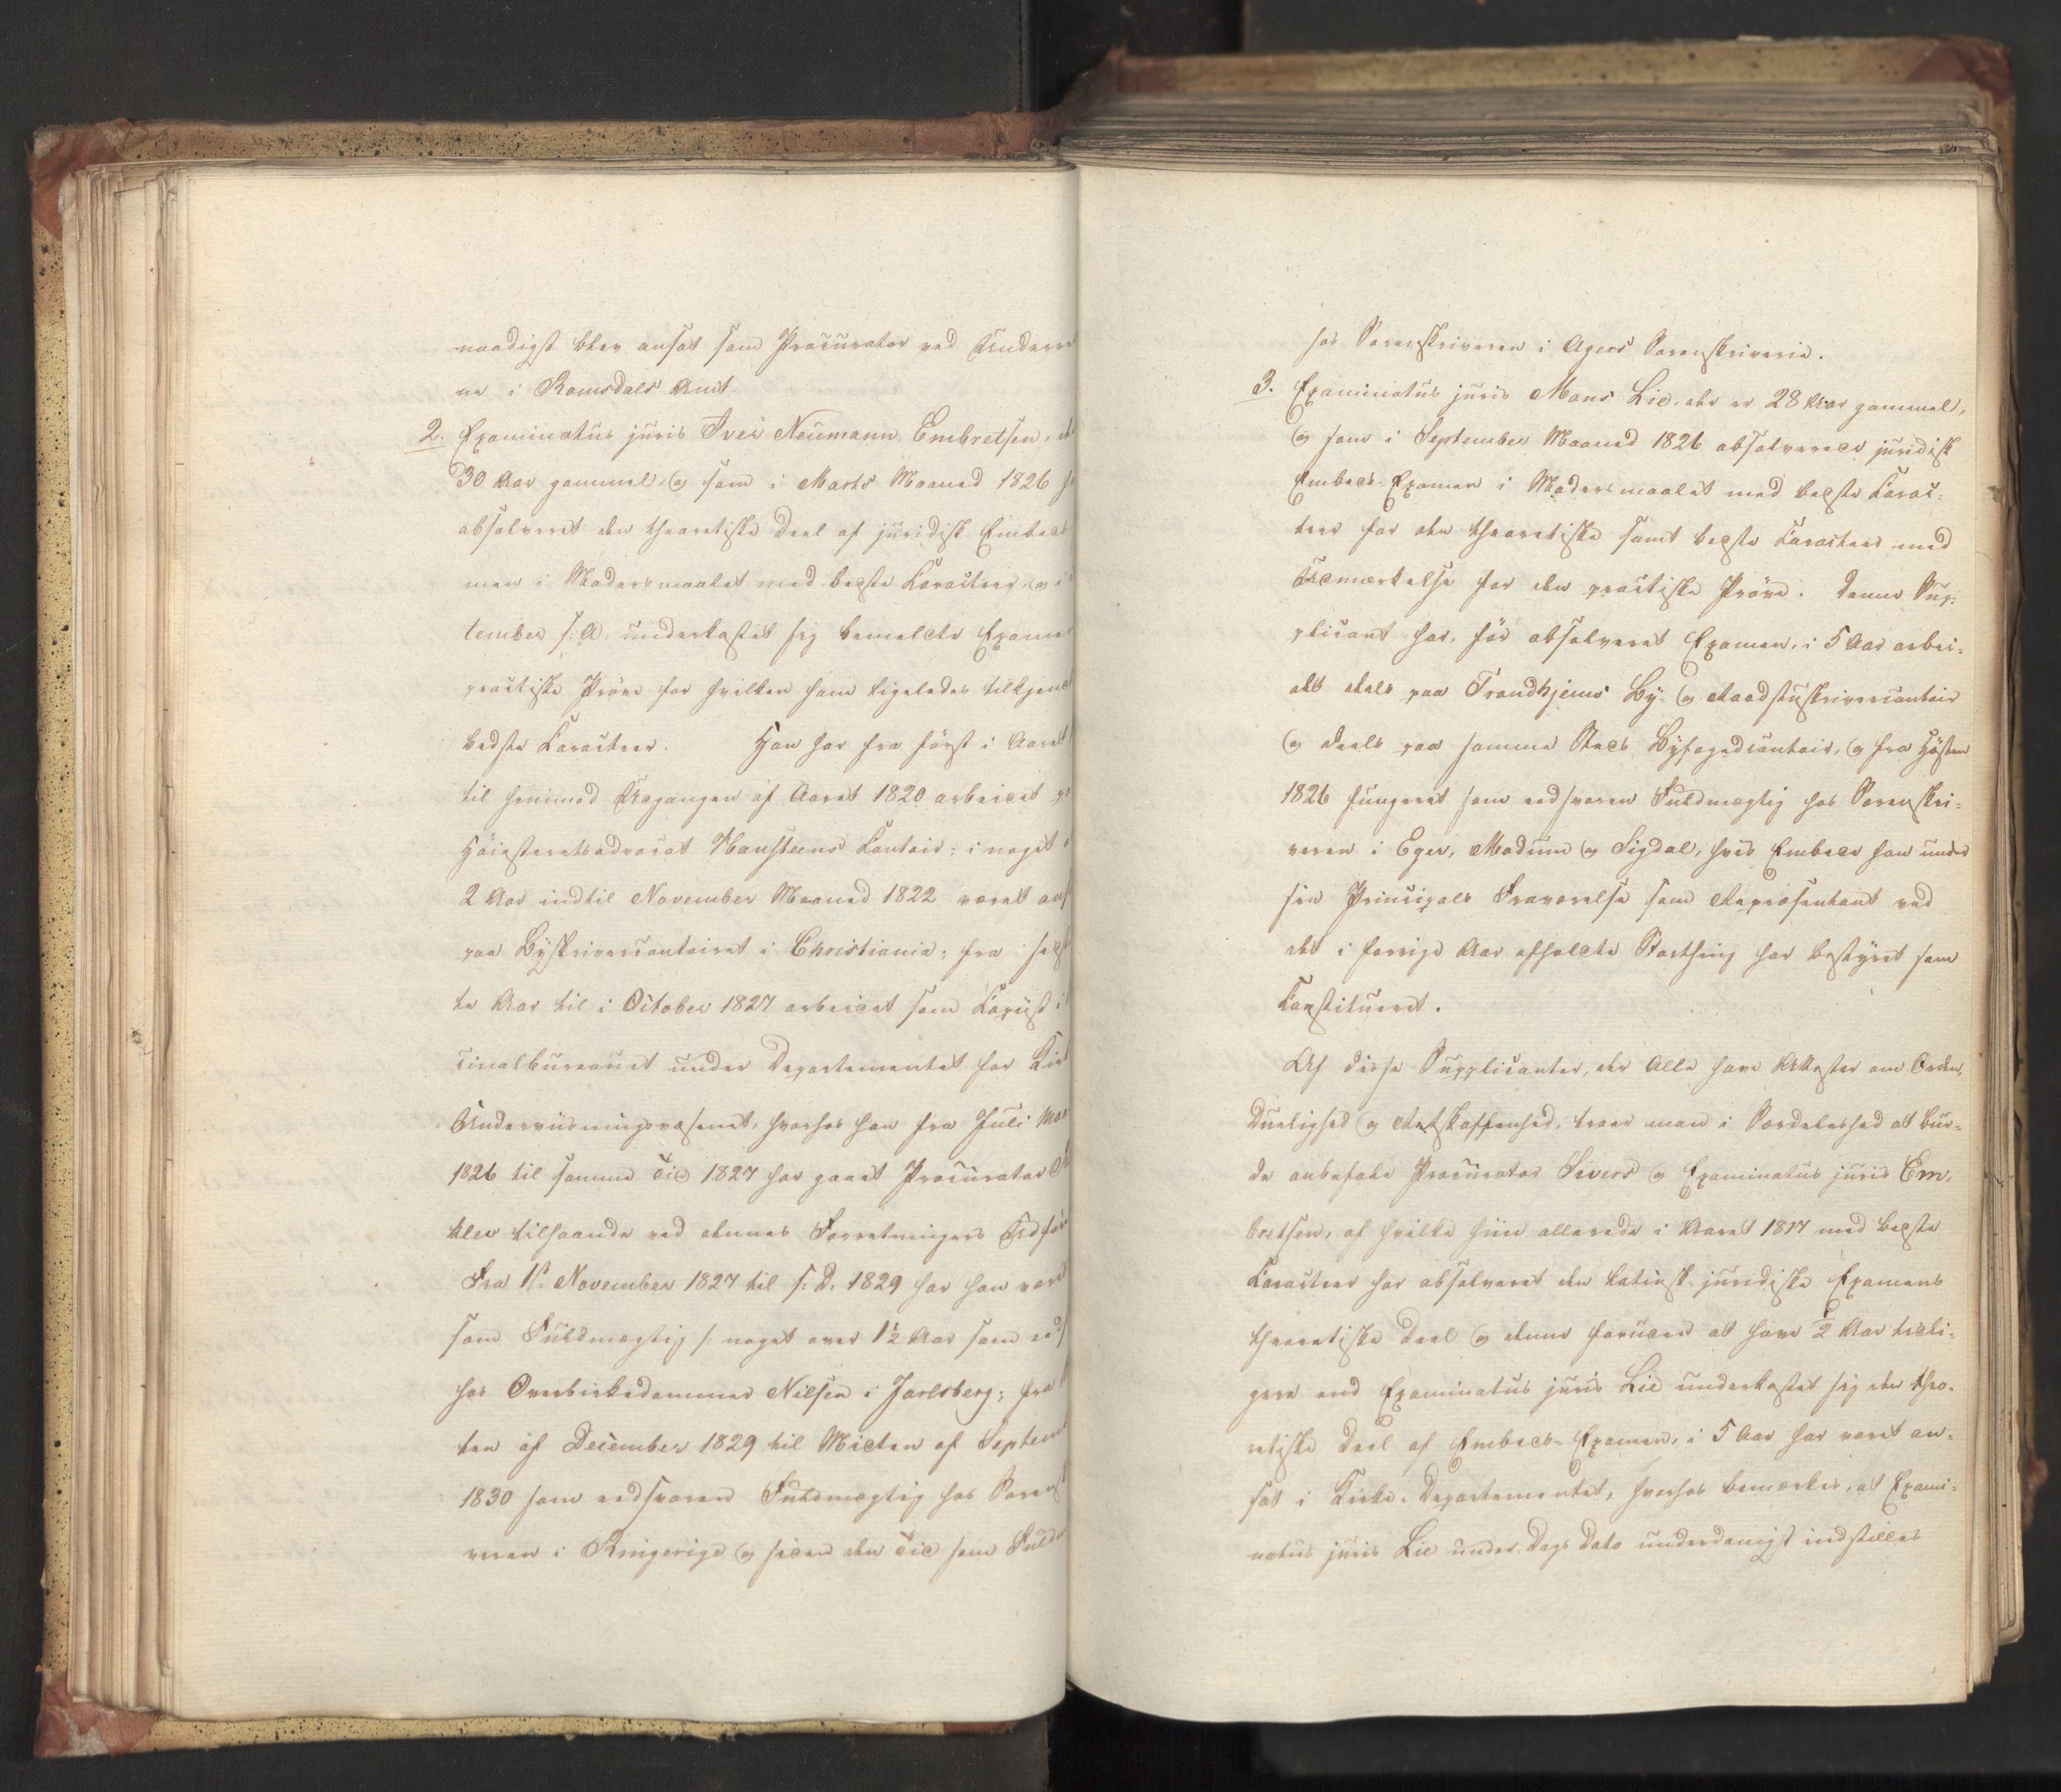 naadigst blev ansat som Procurator ved Underre
ne i Romsdals Amt.
2. Examinatus juris Iver Neumann Embretsen, 
30 Aar gammel, og som i Marts Maaned 1826 
absolveret den theoretiske Deel af juridisk Embeds
men i Modersmaalet med bedste Caracteer, og i
tember s: A: underkastet sig bemeldte Examens
practiske Prøve for hvilken ham ligeledes tilkjend
bedste Caracteer. Han har fra først i Aaret
til henimod Udgangen af Aaret 1820 arbeidet 
Høiesteretsadvocat Hansteens Contoir; i noget
2 Aar indtil November Maaned 1822 været ans
paa Byskrivercontoiret i Christiania; fra sidst
te Aar til i October 1827 arbeidet som Copiist i
cinalbureauet under Departementet for Kirk
Underviisningsvæsenet, hvorhos han fra Juli Maa
1826 til samme Tid 1827 har gaaet Procurator
tilhaande ved dennes Forretningers Udfør
Fra 1ste November 1827 til s: D: 1829 har han være
som Fuldmægtig /: noget over 1½ Aar som eds
hos Overbirkedommer Nilsen i Jarlsberg; fra
ten af December 1829 til Midten af Septem
1830 som edsvoren Fuldmægtig hos Sorens
veren i Ringerige og siden den Tid som Fuldm
hos Sorenskriveren i Agers Sorenskriverie.
3. Examinatus juris Mons Lie, der er 28 Aar gammel,
og som i September Maaned 1826 absolverede juridisk
Embeds-Examen i Modersmaalet med bedste Carac-
teer for den theoretiske samt bedste Caracteer med
Udmærkelse for den practiske Prøve. Denne Sup-
plicant har, før absolveret Examen, i 5 Aar arbei-
det deels paa Trondhjems By- og Raadstuskrivercontoir
og deels paa samme Steds Byfogedcontoir, og fra Høsten
1826 fungeret som eedsvoren Fuldmægtig hos Sorenskri-
veren i Eger, Modum og Sigdal, hvis Embede han under
sin Principals Fraværelse som Repræsentant ved
det i forrige Aar afholdte Storthing har bestyret som
Constitueret.
Af disse Supplicanter, der Alle have Attester om Orden,
Duelighed og Retskaffenhed, troer man i Særdeleshed at bur-
de anbefale Procurator Sivers og Examinatus juris Em-
bretsen, af hvilke hiin allerede i Aaret 1817 med bedste
Caracteer har absolveret den latinsk-juridiske Examens
theoretiske Deel og denne foruden at have ½ Aar tidli-
gere end Examinatus juris Lie underkastet sig den theo-
retiske Deel af Embeds-Examen, i 5 Aar har været an-
sat i Kirke-Departementet, hvorhos bemærkes, at Exami-
natus juris Lie under Dags Dato underdanigst indstilles